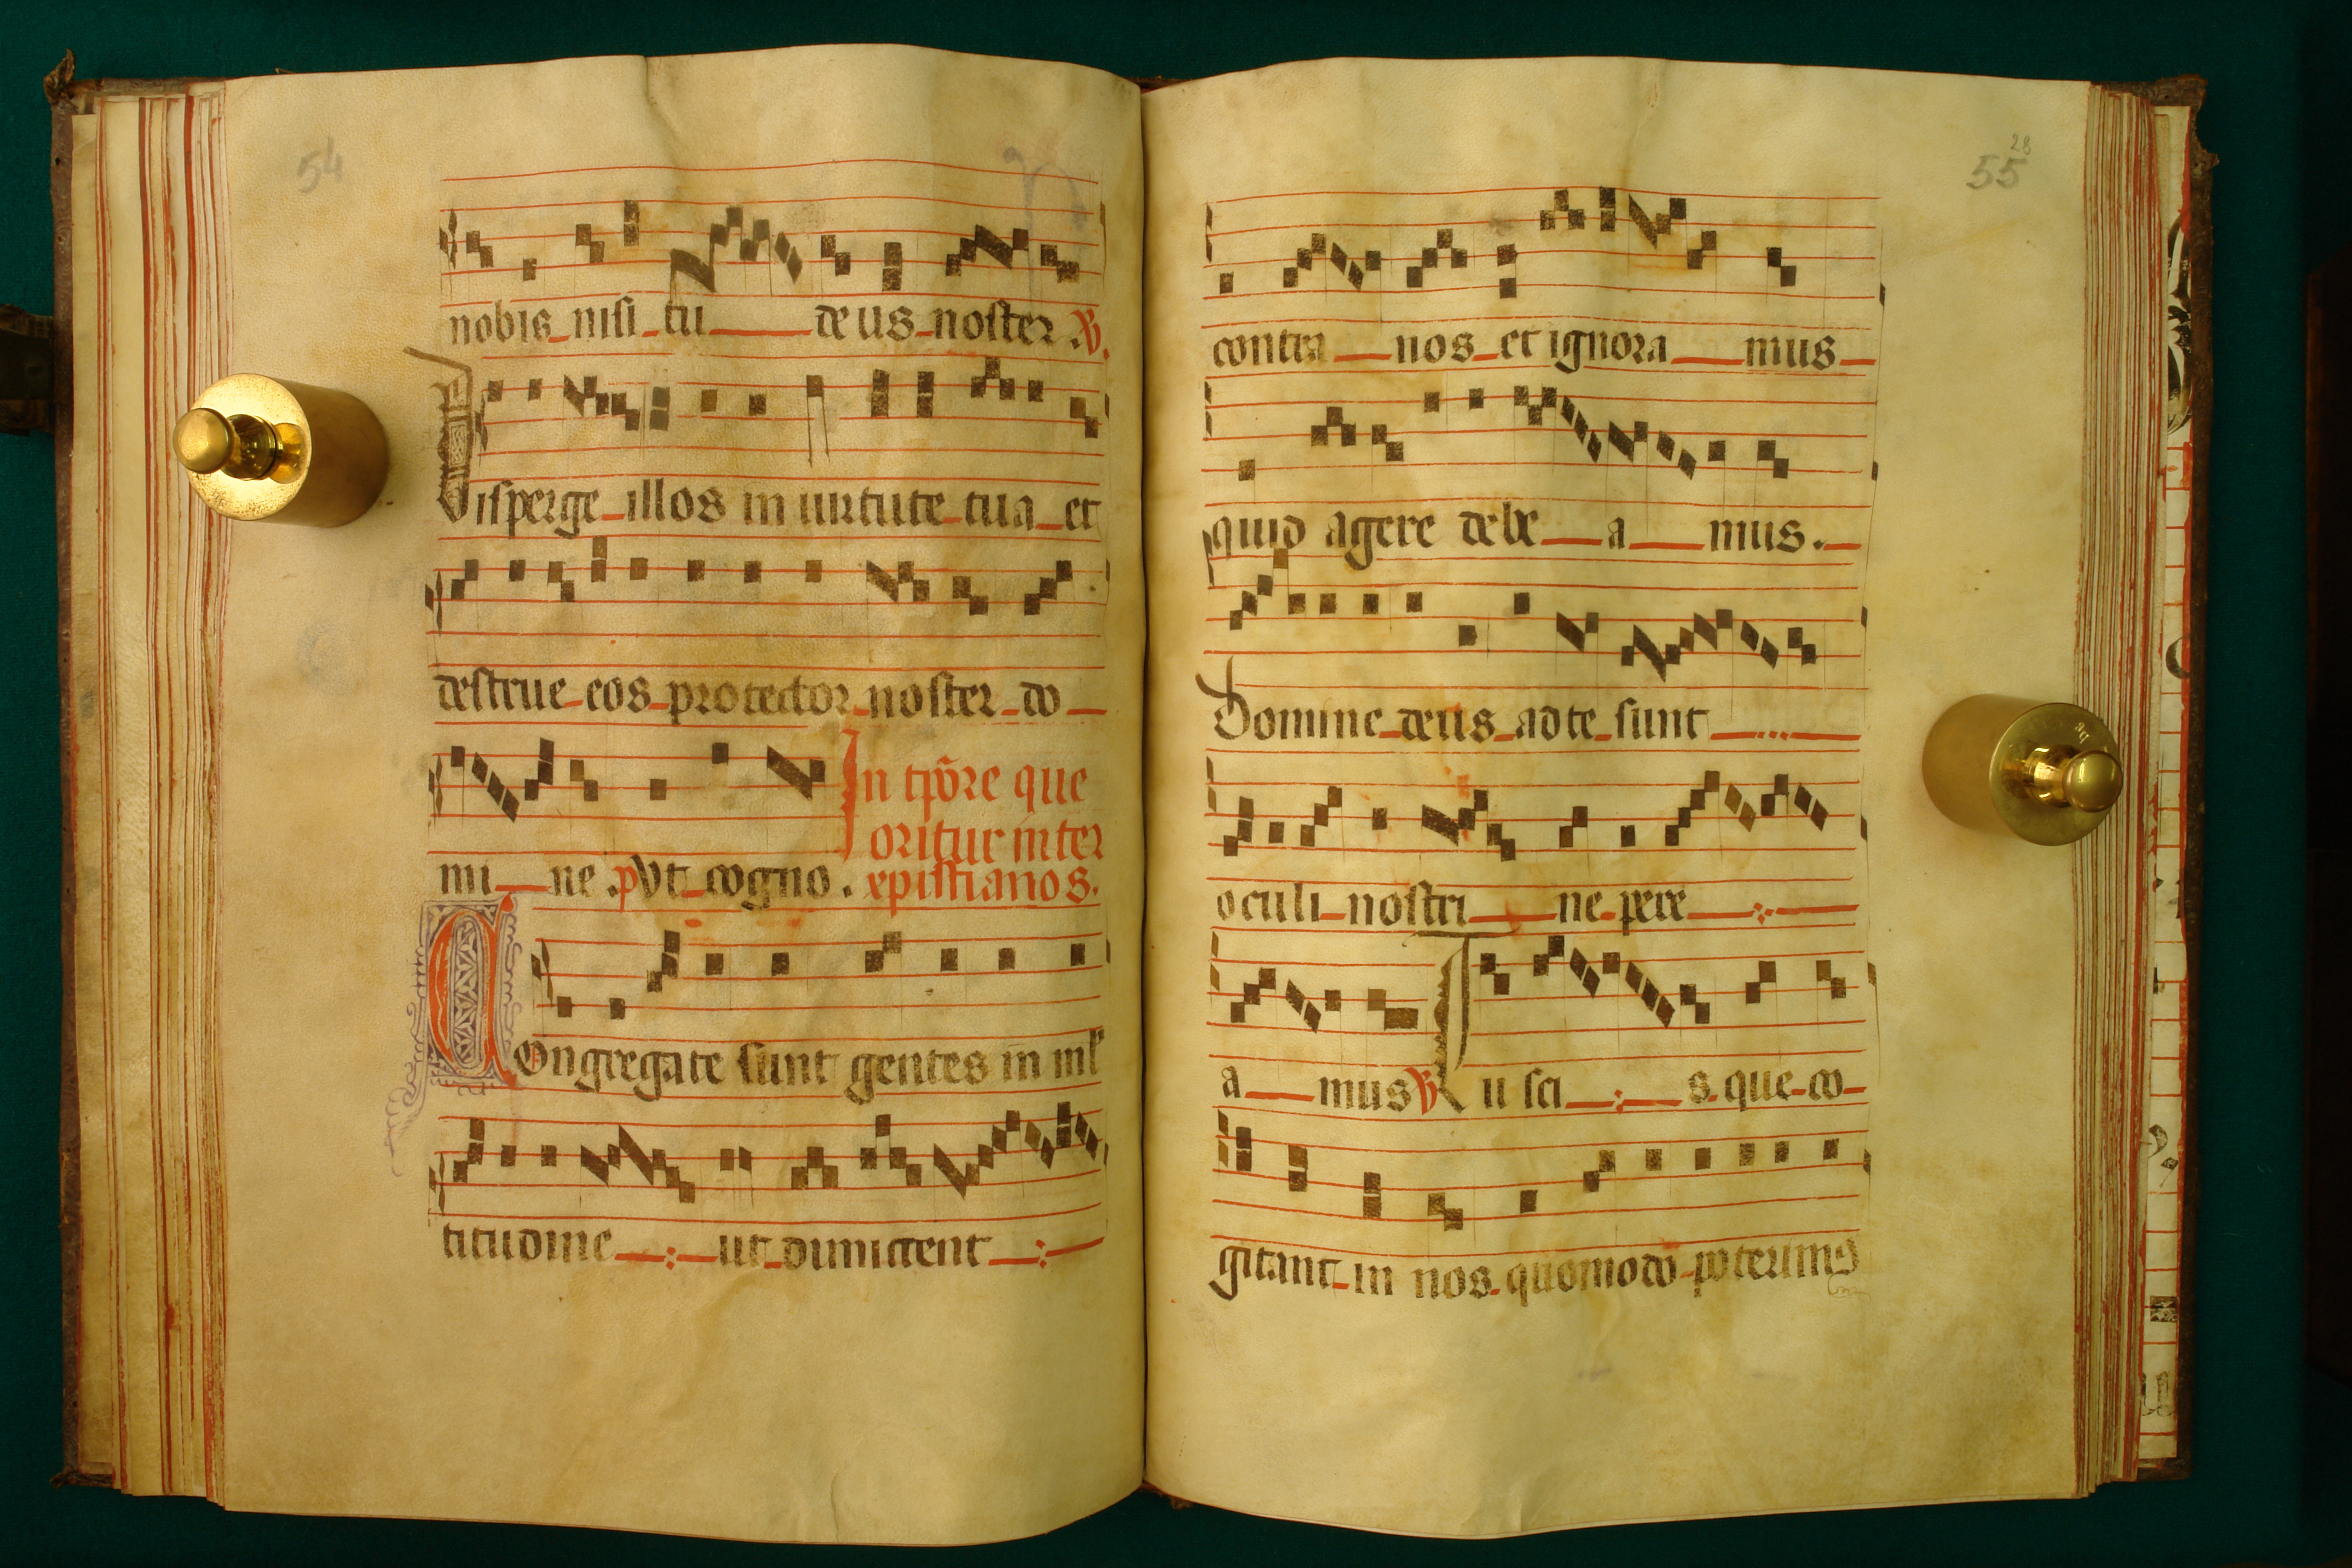 54
nobis nisi tu deus noster ℣.
Disperge illos in uirtute tua et
destrue eos protector noster do
In tp̄ore que
oritur inter
mi ne .p Vt cogno. xpistianos.
Congregate sunt gentes in ml
titudine ut dimicent
28
55
contra nos et ignora mus
quid agere debe a mus.
Domine deus ad te sunt
oculi nostri ne pere
a mus ℣ Tu sci s que co
gitant in nos quomodo poterimus